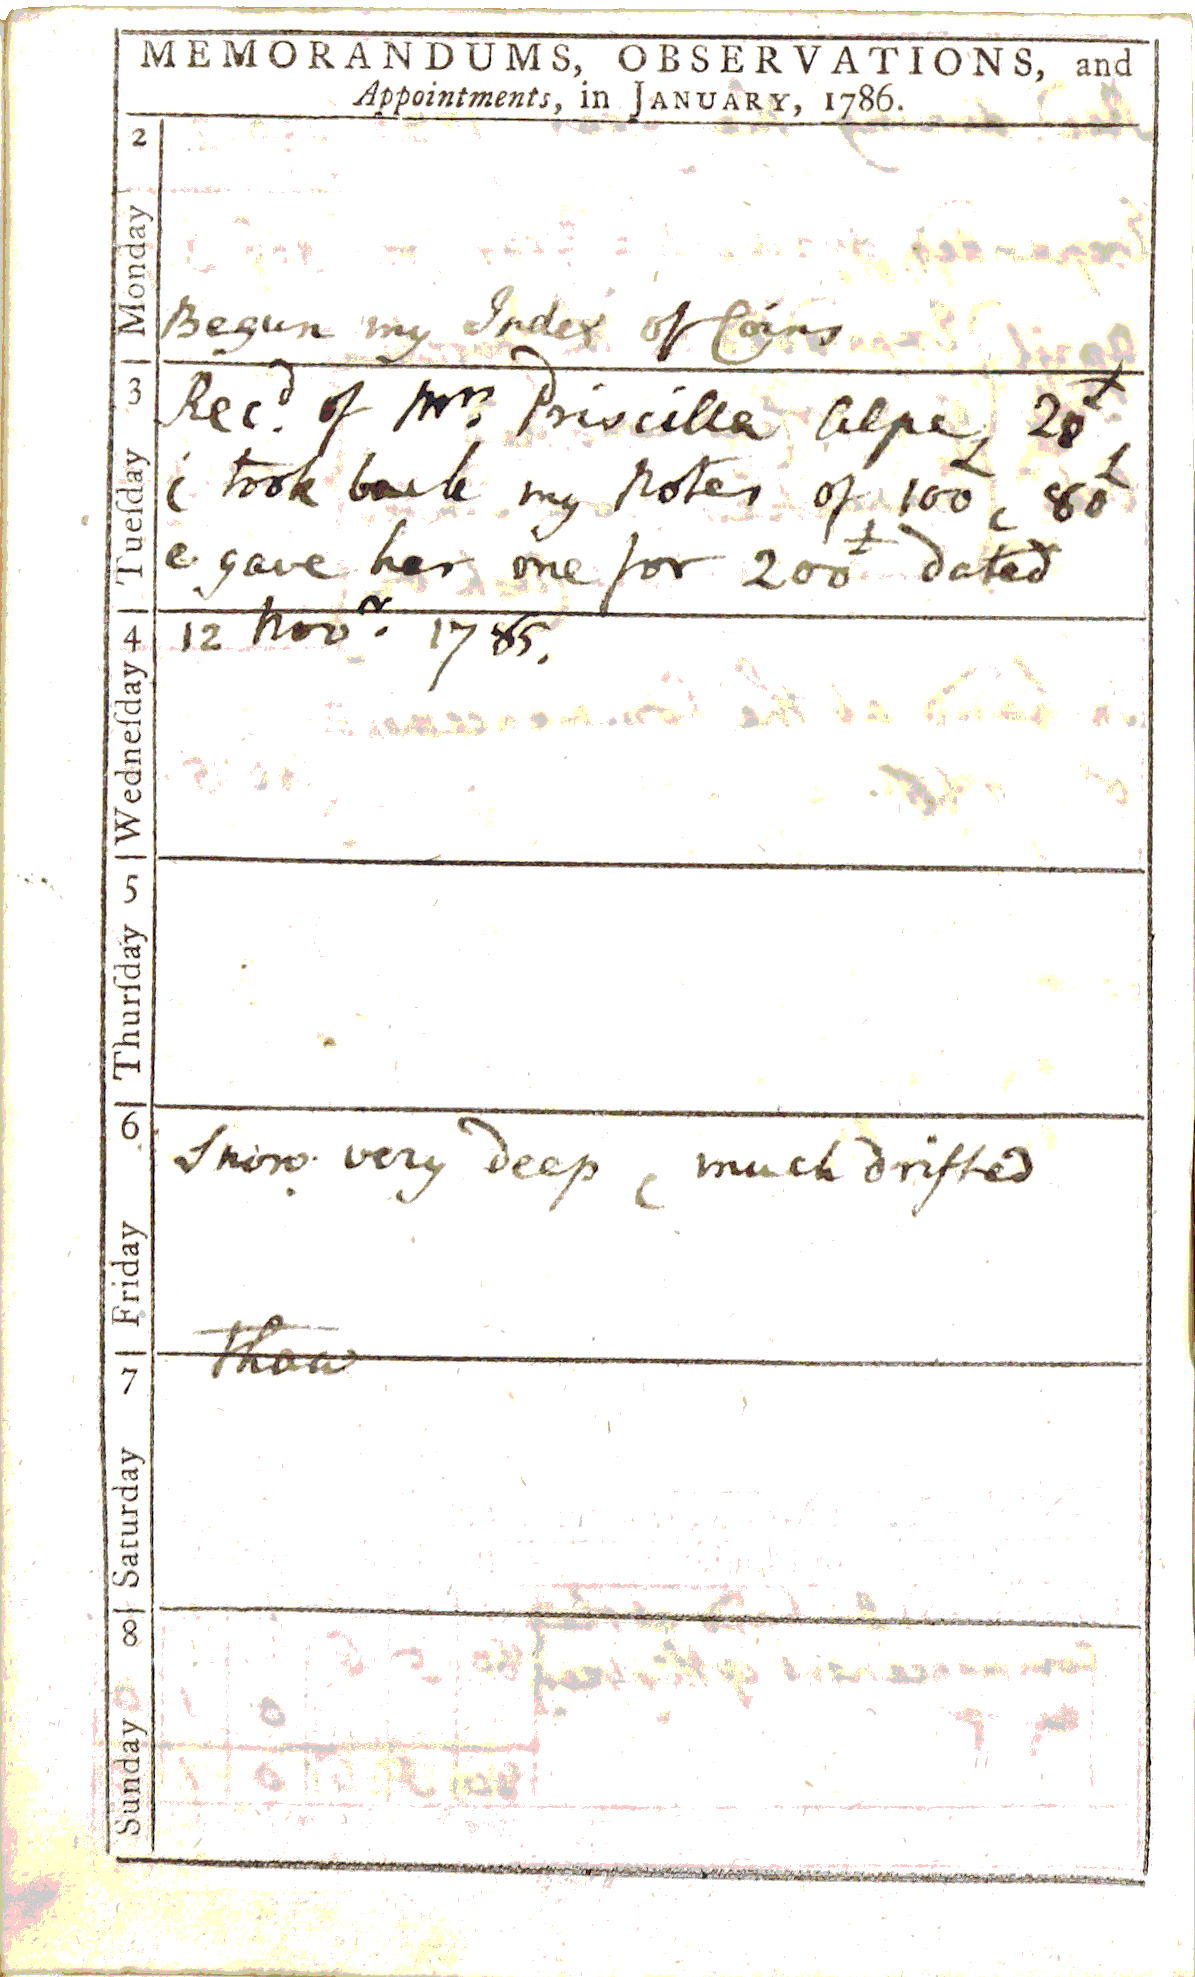 MEMORANDUMS, OBSERVATIONS, and
Appointments, in JANUARY, 1786.
2
Monday
Begun my Index of Coins
3
Tueſday
Rec.d of Mrs. Priscilla Alpe, 20£
& took back my Notes of 100£ & 80£
& gave her one for 200£ dated
4
Wedneſday
12 Novr. 1785.
5
Thurſday
6
Friday
Snow very deep & much drifted
7
Saturday
Thaw
8
Sunday